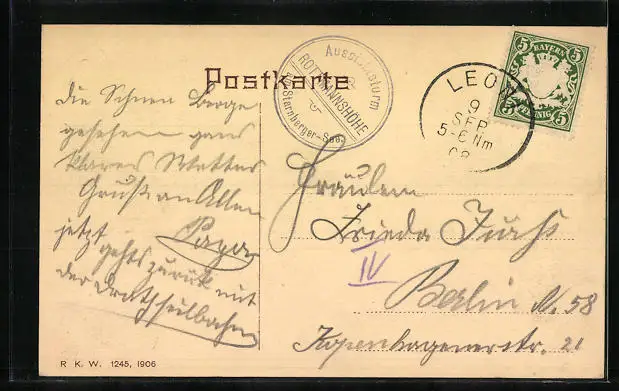 Postkarte
Aussichtsturm
ROTTMANNSHÖHE
am Starnberger-See
LEONI
9
SEP
5-6 Nm
08
5 BAYERN 5
5 PFENNIG 5
die Schnen Berge
gesehen ganz
klares Wetter
Gruß an Allen
Papa
jetzt
gehts zurük mit
der Drathseilbahn
Fräulein
Frieda Juhs
IV
Berlin N. 58
Kopenhagenerstr. 21
R. K. W. 1245, 1906